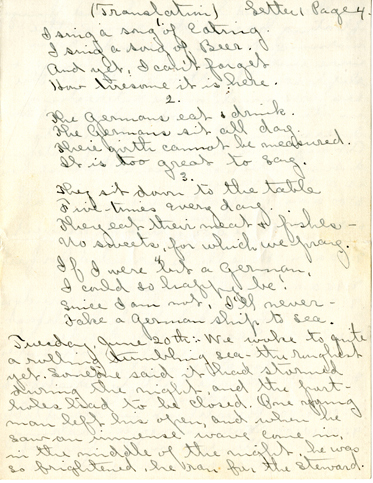 (Translation) Letter, Page 4.
I sing a song of Eating.
I sing a song of Beer.
And yet, I can't forget
How tiresome it is here.
2.
The Germans eat & drink.
The Germans sit all day.
Their girth cannot be measured.
It is too great to say.
3.
They sit down to the table
Five times every day.
They eat their meat & fishes -
No sweets, for which we pray.
4
If I were but a German,
I could so happy be!
Since I am not, I'll never -
Take a German ship to sea.
Tuesday, June 20th:- We woke to quite
a rolling tumbling sea - the roughest
yet. Someone said it had stormed
during the night, and the port-
holes had to be closed. One young
man left his open, and when he
saw an immense wave come in,
in the middle of the night, he was
so frightened, he ran for the steward.